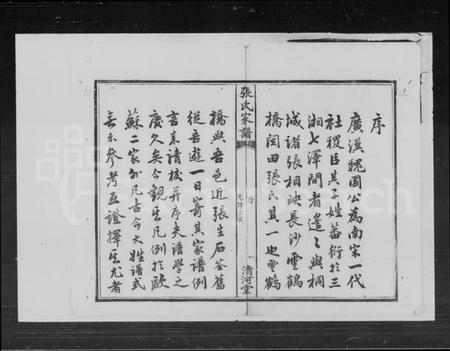 序
廣漢魏國公為南宋一代
社稷臣其子姓蕃衍於三
湘七澤間者遙遙與桐
城諸張相映長沙雲鶴
橋閔田張氏其一也雲鶴
張氏家譜
序
光緒壬寅
一
清河堂
橋與吾邑近張生石荃舊
從吾遊一日寄其家譜例
言來請校并序夫譜學之
廢久矣今觀其凡例於歐
蘇二家外凡古今大姓譜式
無不參考互證擇其尤者